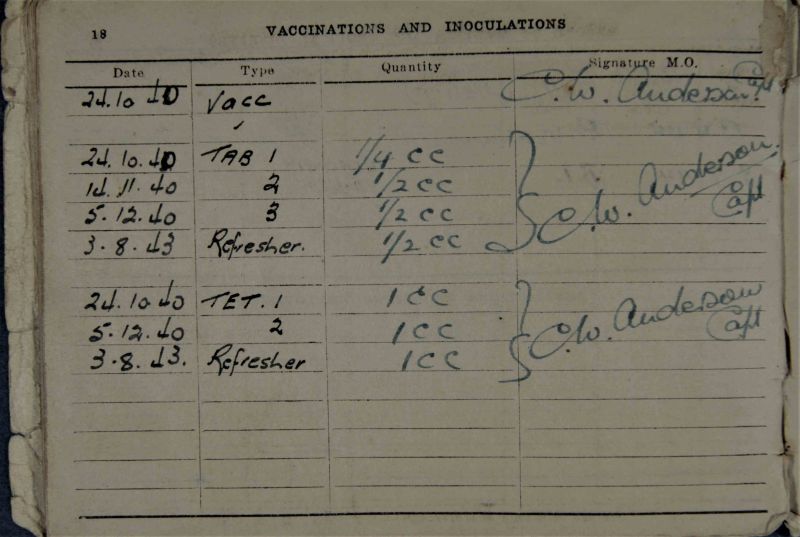 18 VACCINATIONS AND INOCULATIONS
Date Type Quantity Signature M.O.
24.10 40 Vacc C.W. Anderson. Capt
24.10.40 TAB 1 1/4 CC
14.11.40 2 1/2 CC
5.12.40 3 1/2 CC
3.8.43 Refresher. 1/2 CC
C.W. Anderson. Capt
24.10 40 TET. 1 1 CC
5.12.40 2 1 CC
3.8.43. Refresher 1 CC
C.W. Anderson Capt